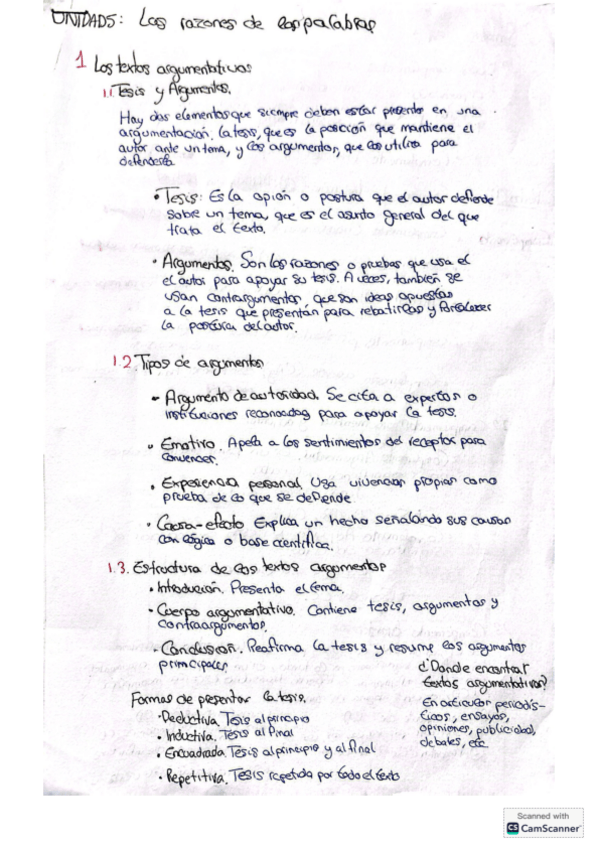 UNIDAD5: Las razones de las palabras
1 Los textos argumentativos
1.1 Tesis y Argumentos.
Hay dos elementos que siempre deben estar presentes en una
argumentación. la tesis, que es la posición que mantiene el
autor ante un tema, y los argumentos, que los utiliza para
defenderla
• Tesis: Es la opión o postura que el autor defiende
sobre un tema, que es el asunto general del que
trata el texto.
• Argumentos. Son las razones o pruebas que usa el
el autor para apoyar su tesis. A veces, también se
usan contrargumentos, que son ideas opuestas
a la tesis que presentán para rebatirlas y fortalecer
la postura del autor.
1.2. Tipos de argumentos
- Argumento de autoridad. Se cita a expertos o
instituciones reconocidas para apoyar la tesis.
• Emotivo. Apela a los sentimientos del receptor para
convencer.
• Experiencia personal. Usa vivencias propias como
prueba de lo que se defiende
• Causa-efecto Explica un hecho señalando sus causas
con lógica o base científica.
1.3. Estructura de los textos argumentos
• Introducción. Presenta el tema.
• Cuerpo argumentativo. Contiene tesis, argumentos y
contraargumentos.
• Conclusion. Reafirma la tesis y resume los argumentos
principales.
Formas de presentar la tesis.
• Deductiva. Tesis al principio
• Inductiva. Tesis al final
• Encuadrada Tesis al principio y al final
• Repetitiva. Tesis repetida por todo el texto
¿Donde encontrar
textos argumentativos?
En articulos periodís-
ticos, ensayos,
opiniones, publicidad,
debates, etc
Scanned with
CS CamScanner